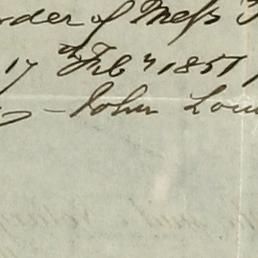 rder of Mess
17th Feby 1851
- John Lou